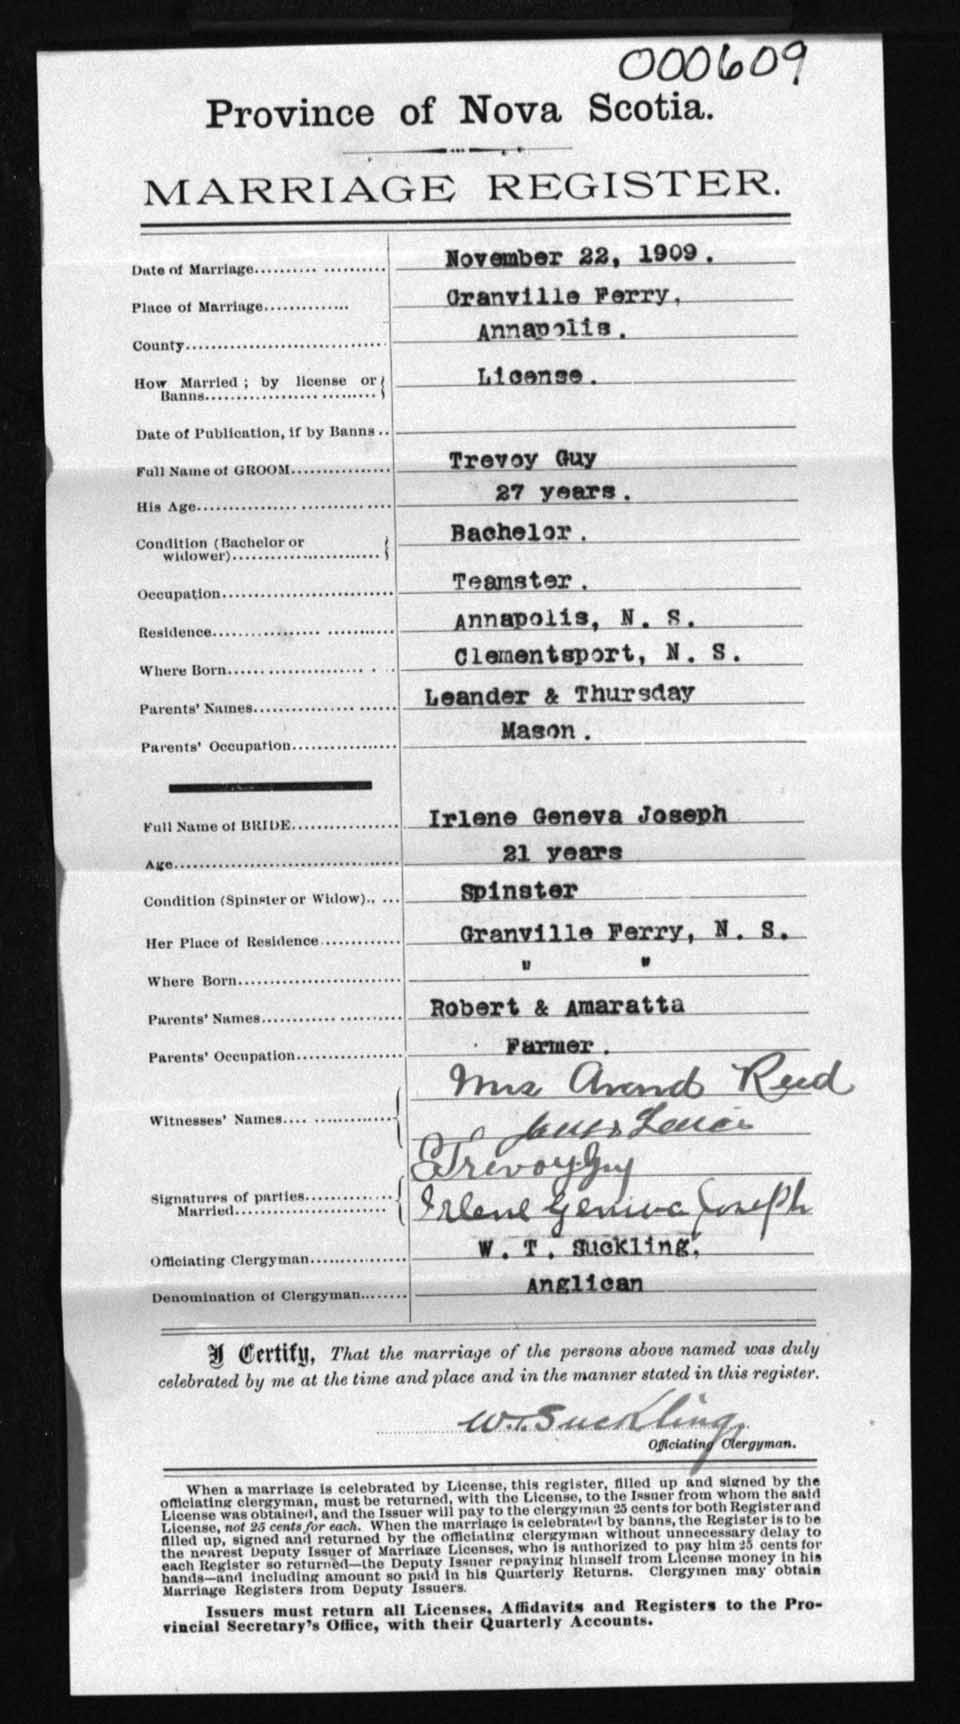 000609
Province of Nova Scotia.
MARRIAGE REGISTER.
Date of Marriage.................... November 22, 1909.
Place of Marriage.............. Granville Ferry,
County.............................. Annapolis.
How Married; by license or
Banns............................ License.
Date of Publication, if by Banns..
Full Name of GROOM................ Trevoy Guy
His Age.............................. 27 years.
Condition (Bachelor or
widower)........................ Bachelor.
Occupation.......................... Teamster.
Residence............................ Annapolis, N. S.
Where Born........................ Clementsport, N. S.
Parents' Names...................... Leander & Thursday
Parents' Occupation................ Mason.
Full Name of BRIDE................ Irlene Geneva Joseph
Age.................................... 21 years
Condition (Spinster or Widow)..... Spinster
Her Place of Residence............ Granville Ferry, N. S.
Where Born.......................... " "
Parents' Names...................... Robert & Amaratta
Parents' Occupation................ Farmer.
Mrs Reed
Witnesses' Names....................
Trevoy Guy
Signatures of parties................
Married.......................... Irlene Geneva Joseph
Officiating Clergyman.............. W. T. Suckling,
Denomination of Clergyman........ Anglican
I Certify, That the marriage of the persons above named was duly
celebrated by me at the time and place and in the manner stated in this register.
W.T. Suckling
Officiating Clergyman.
When a marriage is celebrated by License, this register, filled up and signed by the
officiating clergyman, must be returned, with the License, to the Issuer from whom the said
License was obtained, and the Issuer will pay to the clergyman 25 cents for both Register and
License, not 25 cents for each. When the marriage is celebrated by banns, the Register is to be
filled up, signed and returned by the officiating clergyman without unnecessary delay to
the nearest Deputy Issuer of Marriage Licenses, who is authorized to pay him 25 cents for
each Register so returned—the Deputy Issuer repaying himself from License money in his
hands—and including amount so paid in his Quarterly Returns. Clergymen may obtain
Marriage Registers from Deputy Issuers.
Issuers must return all Licenses, Affidavits and Registers to the Pro-
vincial Secretary's Office, with their Quarterly Accounts.